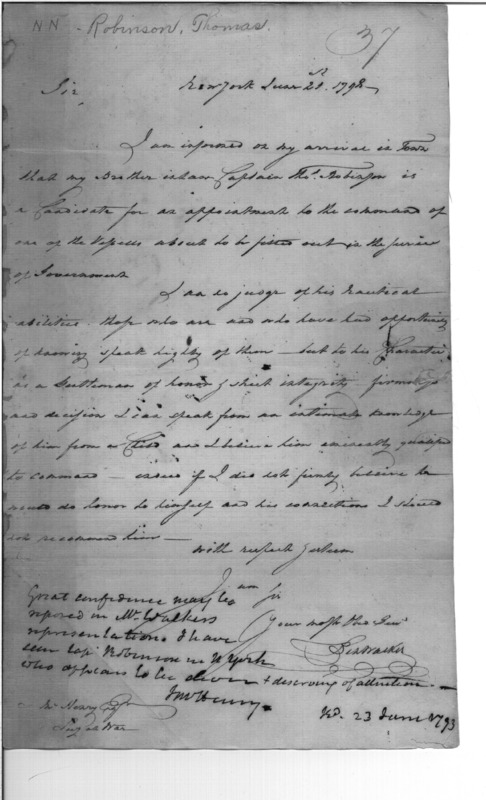 NN - Robinson, Thomas.
37
New York June 21st. 1798
Sir
I am informed on my arrival in Town
that my Brother in law Captain Thos. Robinson is
a Candidate for an appointment to the command of
one of the Vessels about to be fitted out in the service
of Government
I am no judge of his Nautical
abilities. those who are and who have had opportunity
of knowing speak highly of them – but to his Character
as a Gentleman of honor & strict integrity firmness
and decision I can speak from an intimate knowledge
of him from a Child and I believe him eminently qualified
to command – indeed if I did not firmly believe he
would do honor to himself and his connections I should
not recommend him –
with respect & esteem
I am Sir
Your most Obt Serv
Ben Walker
Great confidence may be
reposed in Mr. Walkers
representations I have
seen Capt Robinson in N York
who appears to be clever & deserving of attention. –
J McHenry.
Mc Henry Esqr
Secy at War
Rd. 23 June 1798